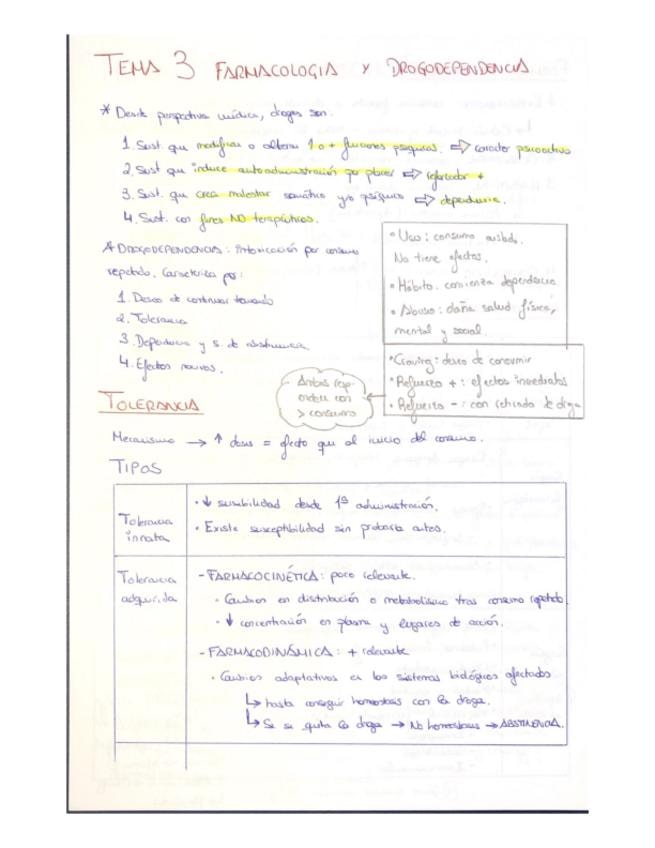 TEMA 3 FARMACOLOGIA Y DROGODEPENDENCIA
* Desde perspectiva médica, drogas son:
1. Sust. que modifican o alteran 1 o + funciones psíquicas. ⇨ carácter psicoactivo
2. Sust que induce autoadministración por placer ⇨ reforzador +
3. Sust. que crea malestar somático y/o psíquico ⇨ dependencia.
4. Sust. con fines NO terapéuticos.
* DROGODEPENDENCIAS: Intoxicación por consumo
repetido. Caracteriza por:
1. Deseo de continuar tomando
2. Tolerancia
3. Dependencia y s. de abstinencia
4. Efectos nocivos.
• Uso: consumo aislado.
No tiene efectos.
• Hábito: comienza dependencia
• Abuso: daña salud física,
mental y social.
• Craving: deseo de consumir
• Refuerzo +: efectos inmediatos
• Refuerzo -: con retirada de droga
Ambos resp-
onden con
> consumo
TOLERANCIA
Mecanismo → ↑ dosis = efecto que al inicio del consumo.
TIPOS
Tolerancia
innata
• ↓ sensibilidad desde 1ª administración.
• Existe susceptibilidad sin probarla antes.
Tolerancia
adquirida
- FARMACOCINÉTICA: poco relevante.
• Cambios en distribución o metabolismo tras consumo repetido
• ↓ concentración en plasma y lugares de acción.
- FARMACODINÁMICA: + relevante
• Cambios adaptativos en los sistemas biológicos afectados
↳ hasta conseguir homeostasis con la droga.
↳ Si se quita la droga → No homeostasis → ABSTINENCIA.